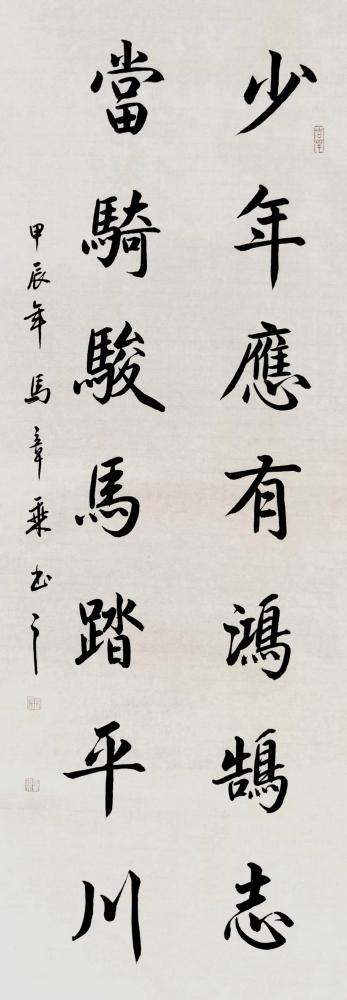 少年應有鴻鵠志
當騎駿馬踏平川
甲辰年馬章乘書